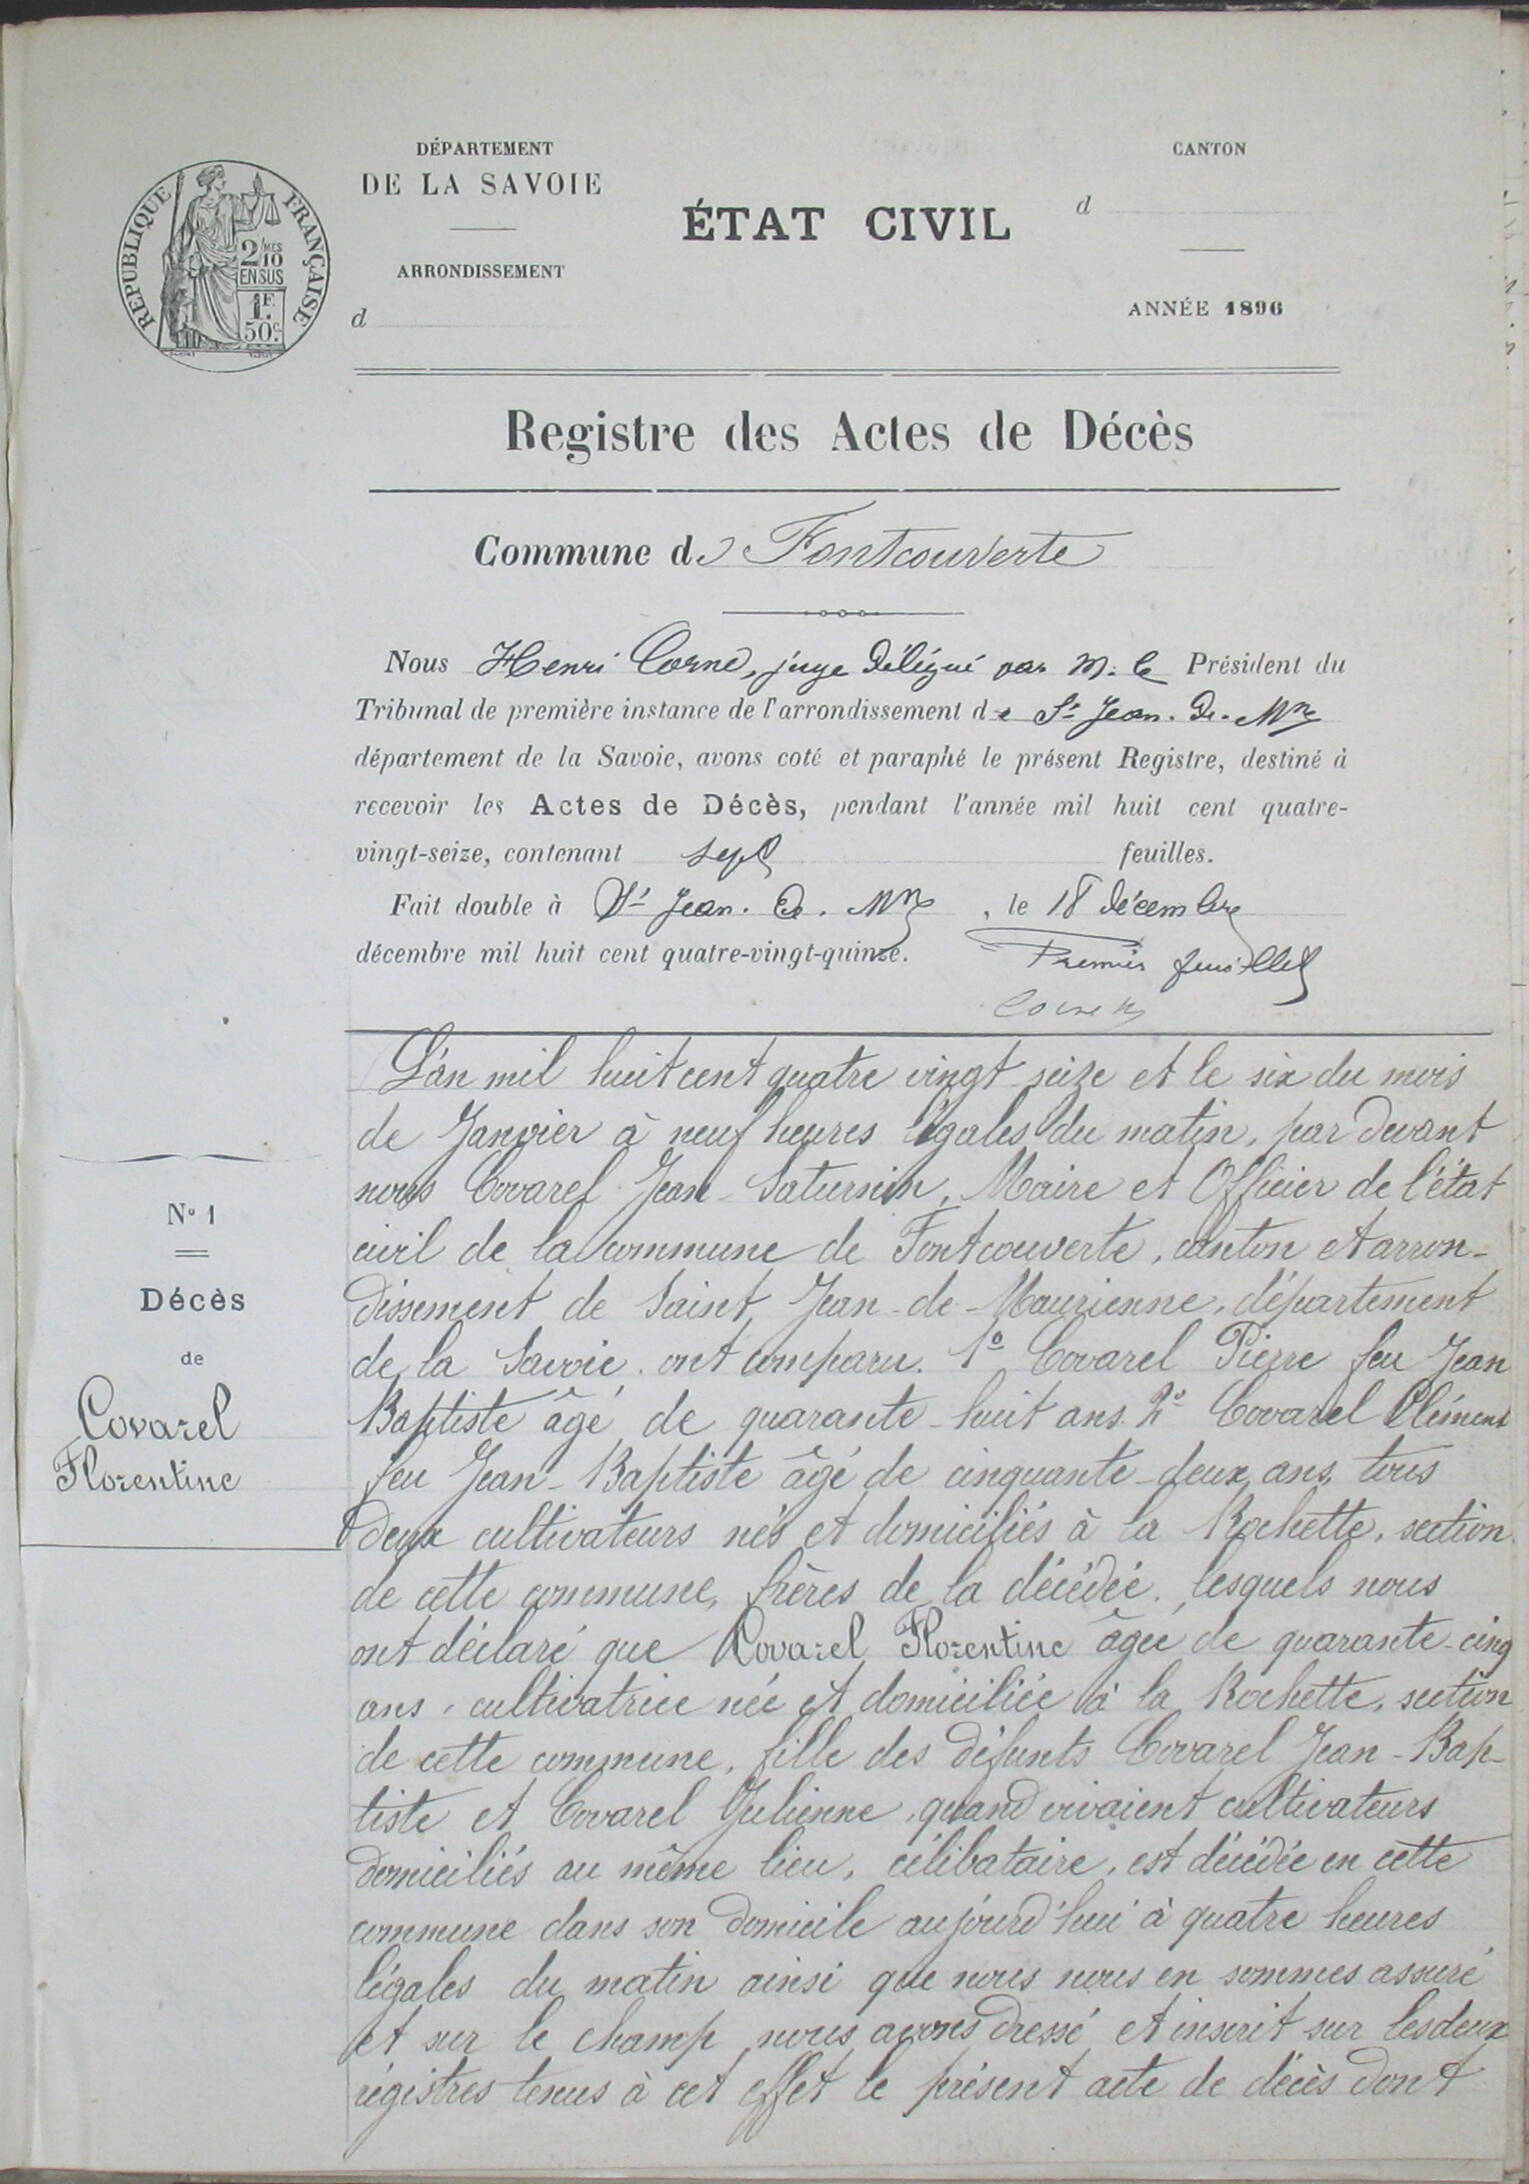 DÉPARTEMENT
DE LA SAVOIE
ARRONDISSEMENT
d
RÉPUBLIQUE FRANÇAISE
2/10MES
EN SUS
1F.
50c.
ÉTAT CIVIL
CANTON
d
ANNÉE 1896
Registre des Actes de Décès
Commune de Fontcouverte
Nous Henri Corne, juge délégué par M. le Président du
Tribunal de première instance de l'arrondissement de St Jean. de. Mne
département de la Savoie, avons coté et paraphé le présent Registre, destiné à
recevoir les Actes de Décès, pendant l'année mil huit cent quatre-
vingt-seize, contenant sept feuilles.
Fait double à St Jean. de. Mne, le 18 décembre
décembre mil huit cent quatre-vingt-quinze.
Premier feuillet
L'an mil huit cent quatre vingt seize et le six du mois
de Janvier à neuf heures légales du matin, par devant
nous Covarel Jean-Saturnin, Maire et Officier de l'état
civil de la commune de Fontcouverte, canton et arron-
dissement de Saint Jean-de-Maurienne, département
de la Savoie. ont comparu. 1º Covarel Pierre feu Jean
Baptiste âgé de quarante-huit ans. 2º Covarel Clément
feu Jean-Baptiste âgé de cinquante-deux ans, tous
deux cultivateurs nés et domiciliés à la Rochette, section
de cette commune, frères de la décédée. lesquels nous
ont déclaré que Covarel Florentine âgée de quarante-cinq
ans, cultivatrice née et domiciliée à la Rochette, section
de cette commune, fille des défunts Covarel Jean-Bap-
tiste et Covarel Julienne, quand vivaient cultivateurs
domiciliés au même lieu, célibataire, est décédée en cette
commune dans son domicile aujourd'hui à quatre heures
légales du matin ainsi que nous nous en sommes assuré
et sur le champ nous avons dressé et inscrit sur les deux
régistres tenus à cet effet le présent acte de décès dont
No 1
Décès
de
Covarel
Florentine